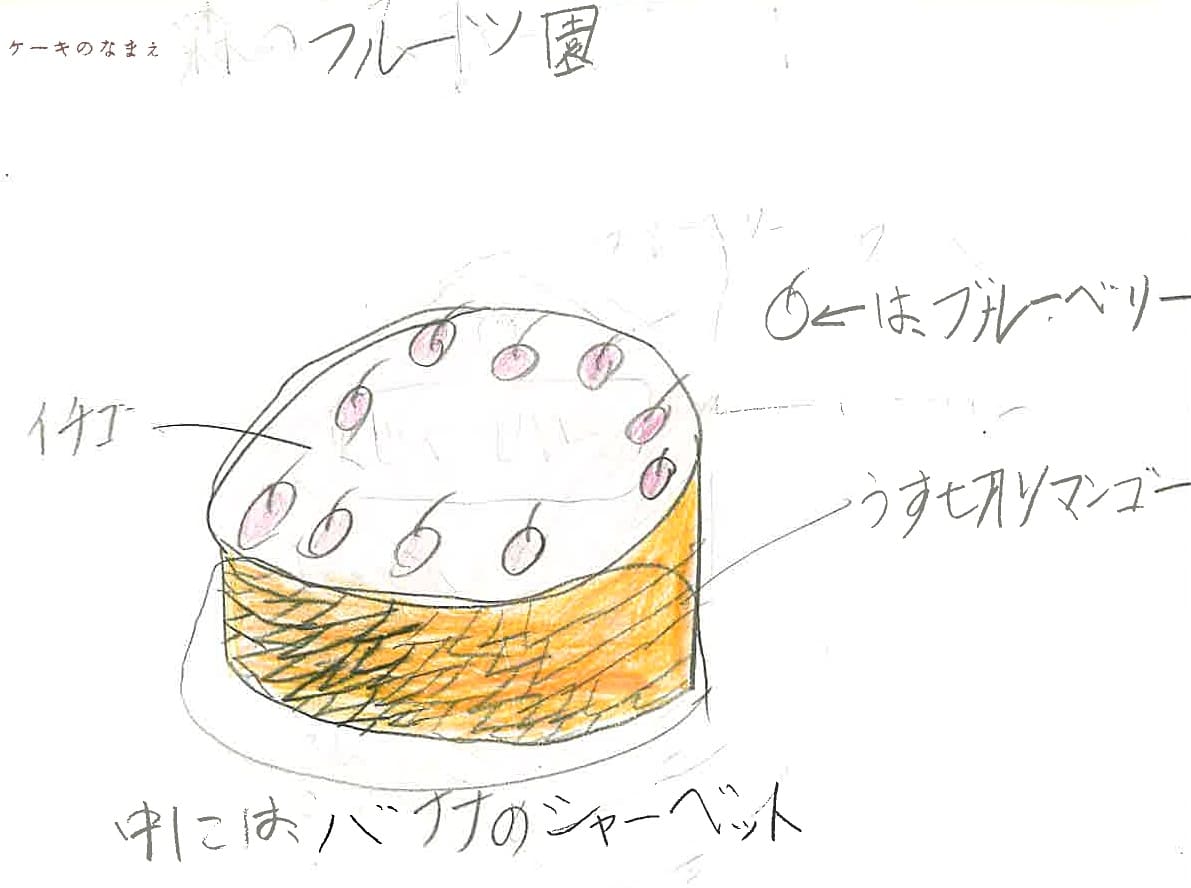 ケーキのなまえ
フルーツ園
←は、ブルーベリー
イチゴ
うす切りマンゴー
中には、バナナのシャーベット